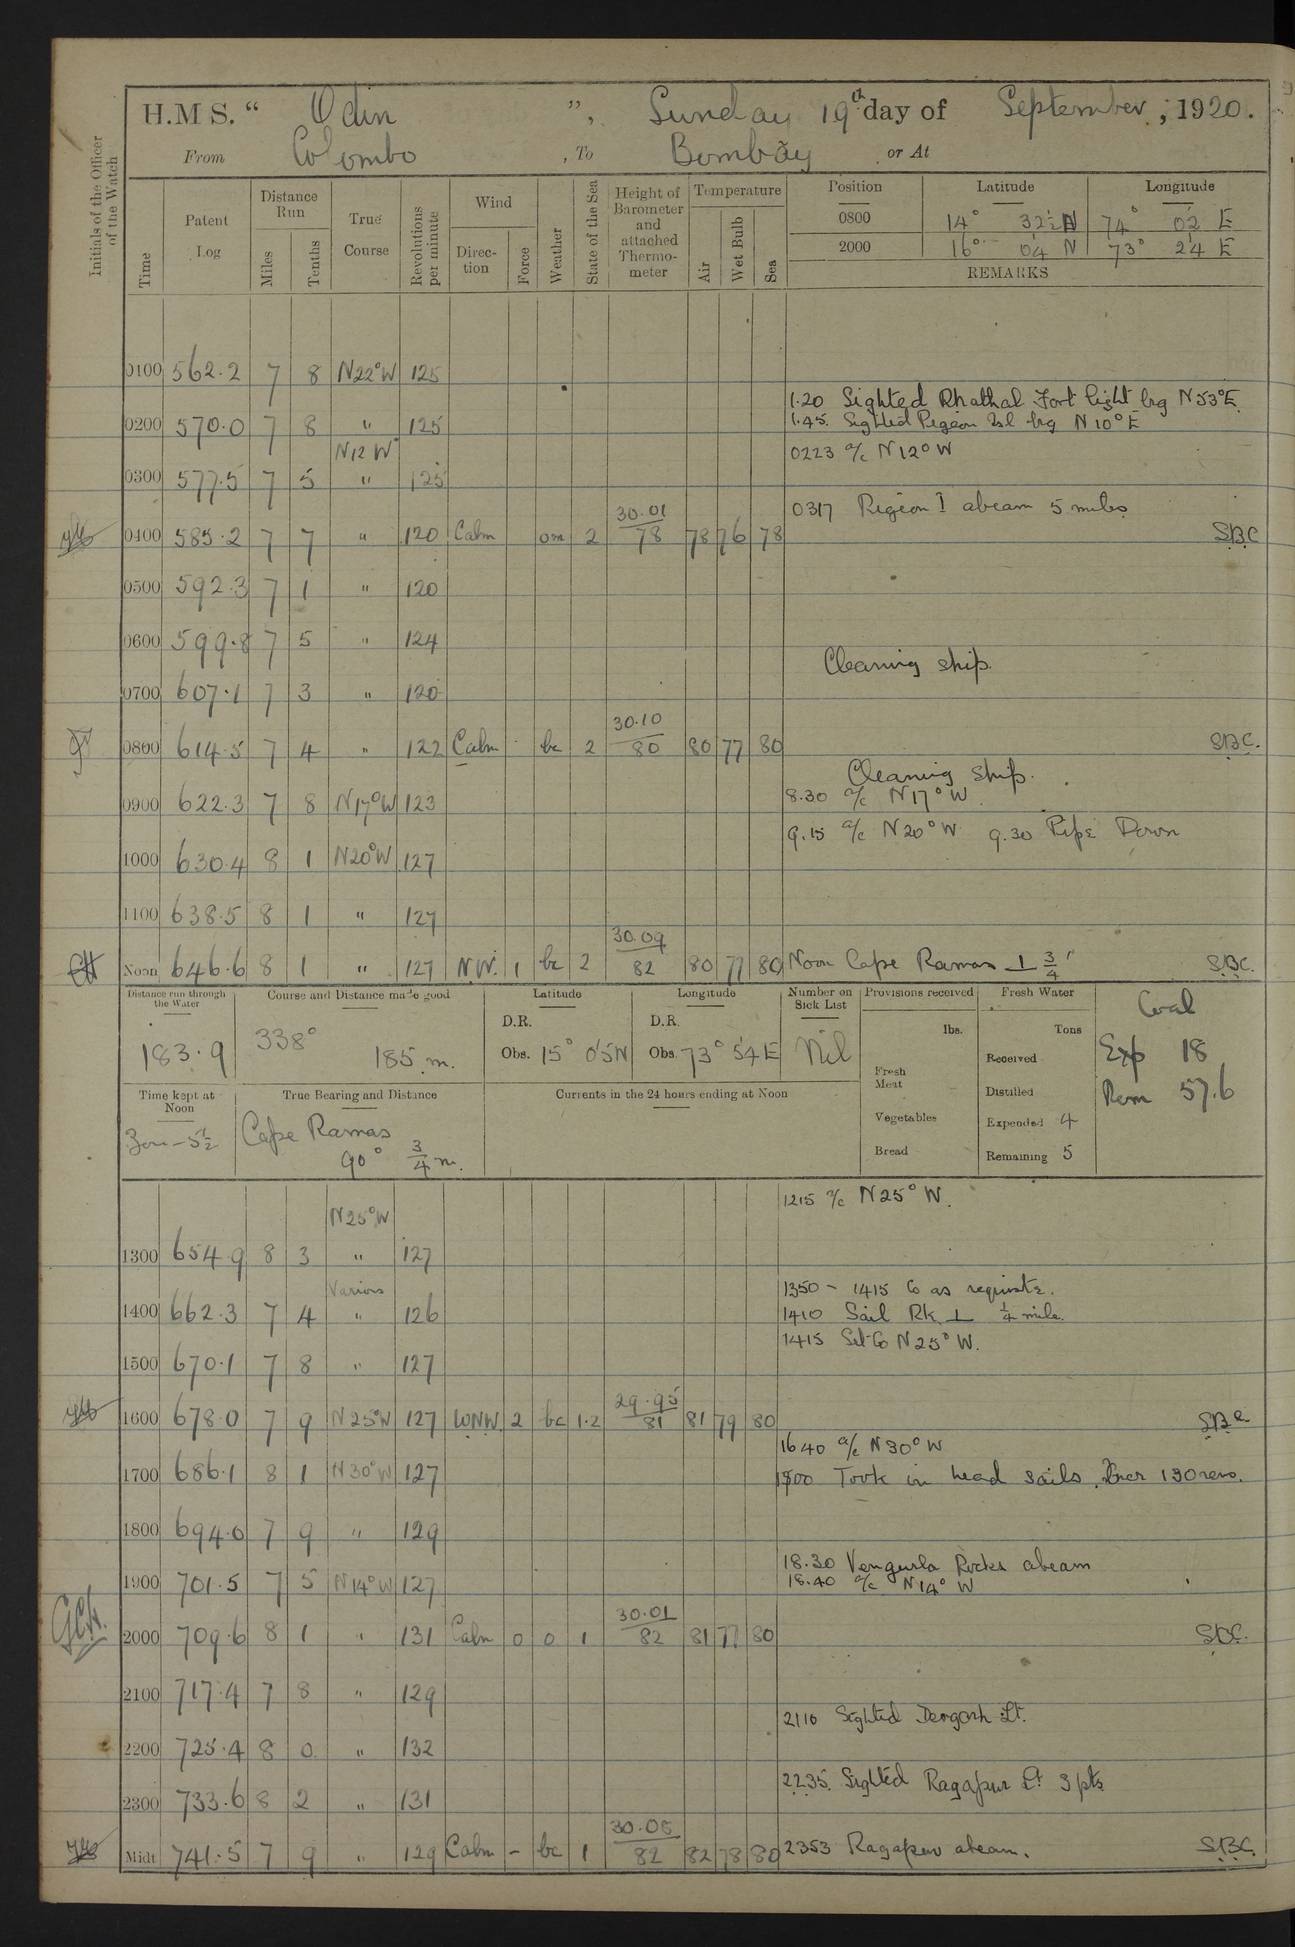 H.M S. “ Odin ”, Sunday 19th day of September, 1920.
From Colombo, To Bombay or At
Initials of the Officer of the Watch
Time
Patent Log
Distance Run
Miles
Tenths
True Course
Revolutions per minute
Wind
Direction
Force
Weather
State of the Sea
Height of Barometer and attached Thermometer
Temperature
Air
Wet Bulb
Sea
Position Latitude Longitude
0800 14° 32½ N 74° 02 E
2000 16° 04 N 73° 24 E
REMARKS
0100 562.2 7 8 N22°W 125
1.20 Sighted Fort light brg N53°E
0200 570.0 7 8 " 125 1.45. Sighted Pigeon Isl brg N10°E
N12 W° 0223 a/c N12°W
0300 577.5 7 5 " 125
0317 Pigeon I abeam 5 miles
0400 585.2 7 7 " 120 Calm om 2 30.01/78 78 76 78 S.B.C
0500 592.3 7 1 " 120
0600 599.8 7 5 " 124
Cleaning ship.
0700 607.1 7 3 " 120
0800 614.5 7 4 " 122 Calm - bc 2 30.10/80 80 77 80 S.B.C.
Cleaning Ship.
0900 622.3 7 8 N17°W 123 8.30 a/c N17°W
9.15 a/c N20°W 9.30 Pipe Down
1000 630.4 8 1 N20°W 127
1100 638.5 8 1 " 127
Noon 646.6 8 1 " 127 N.W. 1 bc 2 30.09/82 80 77 80 Noon Cape Ramas ⊥ 3/4' S.B.C.
Distance run through the Water
183.9
Course and Distance made good
338° 185 m.
Latitude
D.R.
Obs. 15° 05 N
Longitude
D.R.
Obs. 73° 54 E
Number on Sick List
Nil
Provisions received
lbs.
Fresh Meat
Vegetables
Bread
Fresh Water
Tons
Received
Distilled
Expended 4
Remaining 5
Coal
Exp 18
Rem 57.6
Time kept at Noon
Zon - 5½
True Bearing and Distance
Cape Ramas
90° 3/4 m.
Currents in the 24 hours ending at Noon
1215 a/c N25°W.
N25°W
1300 654.9 8 3 " 127
Various 1350 - 1415 Co as requisite.
1400 662.3 7 4 " 126 1410 Sail Rk ⊥ ¼ mile.
1415 Set Co N25°W.
1500 670.1 7 8 " 127
1600 678.0 7 9 N25°W 127 WNW. 2 bc 1.2 29.95/81 81 79 80 S.B.C
1640 a/c N30°W
1700 686.1 8 1 N30°W 127 Took in head sails. Incr 130 revs.
1800 694.0 7 9 " 129
18.30 Vengurla Rocks abeam
1900 701.5 7 5 N14°W 127 18.40 a/c N14°W
G.C.H.
2000 709.6 8 1 " 131 Calm 0 0 1 30.01/82 81 77 80 S.B.C.
2100 717.4 7 8 " 129
2110 Sighted Lt.
2200 725.4 8 0 " 132
2235. Sighted Ragapur Lt 3 pts
2300 733.6 8 2 " 131
Midt 741.5 7 9 " 129 Calm - bc 1 82 82 78 80 2353 Ragapur abeam. S.B.C.